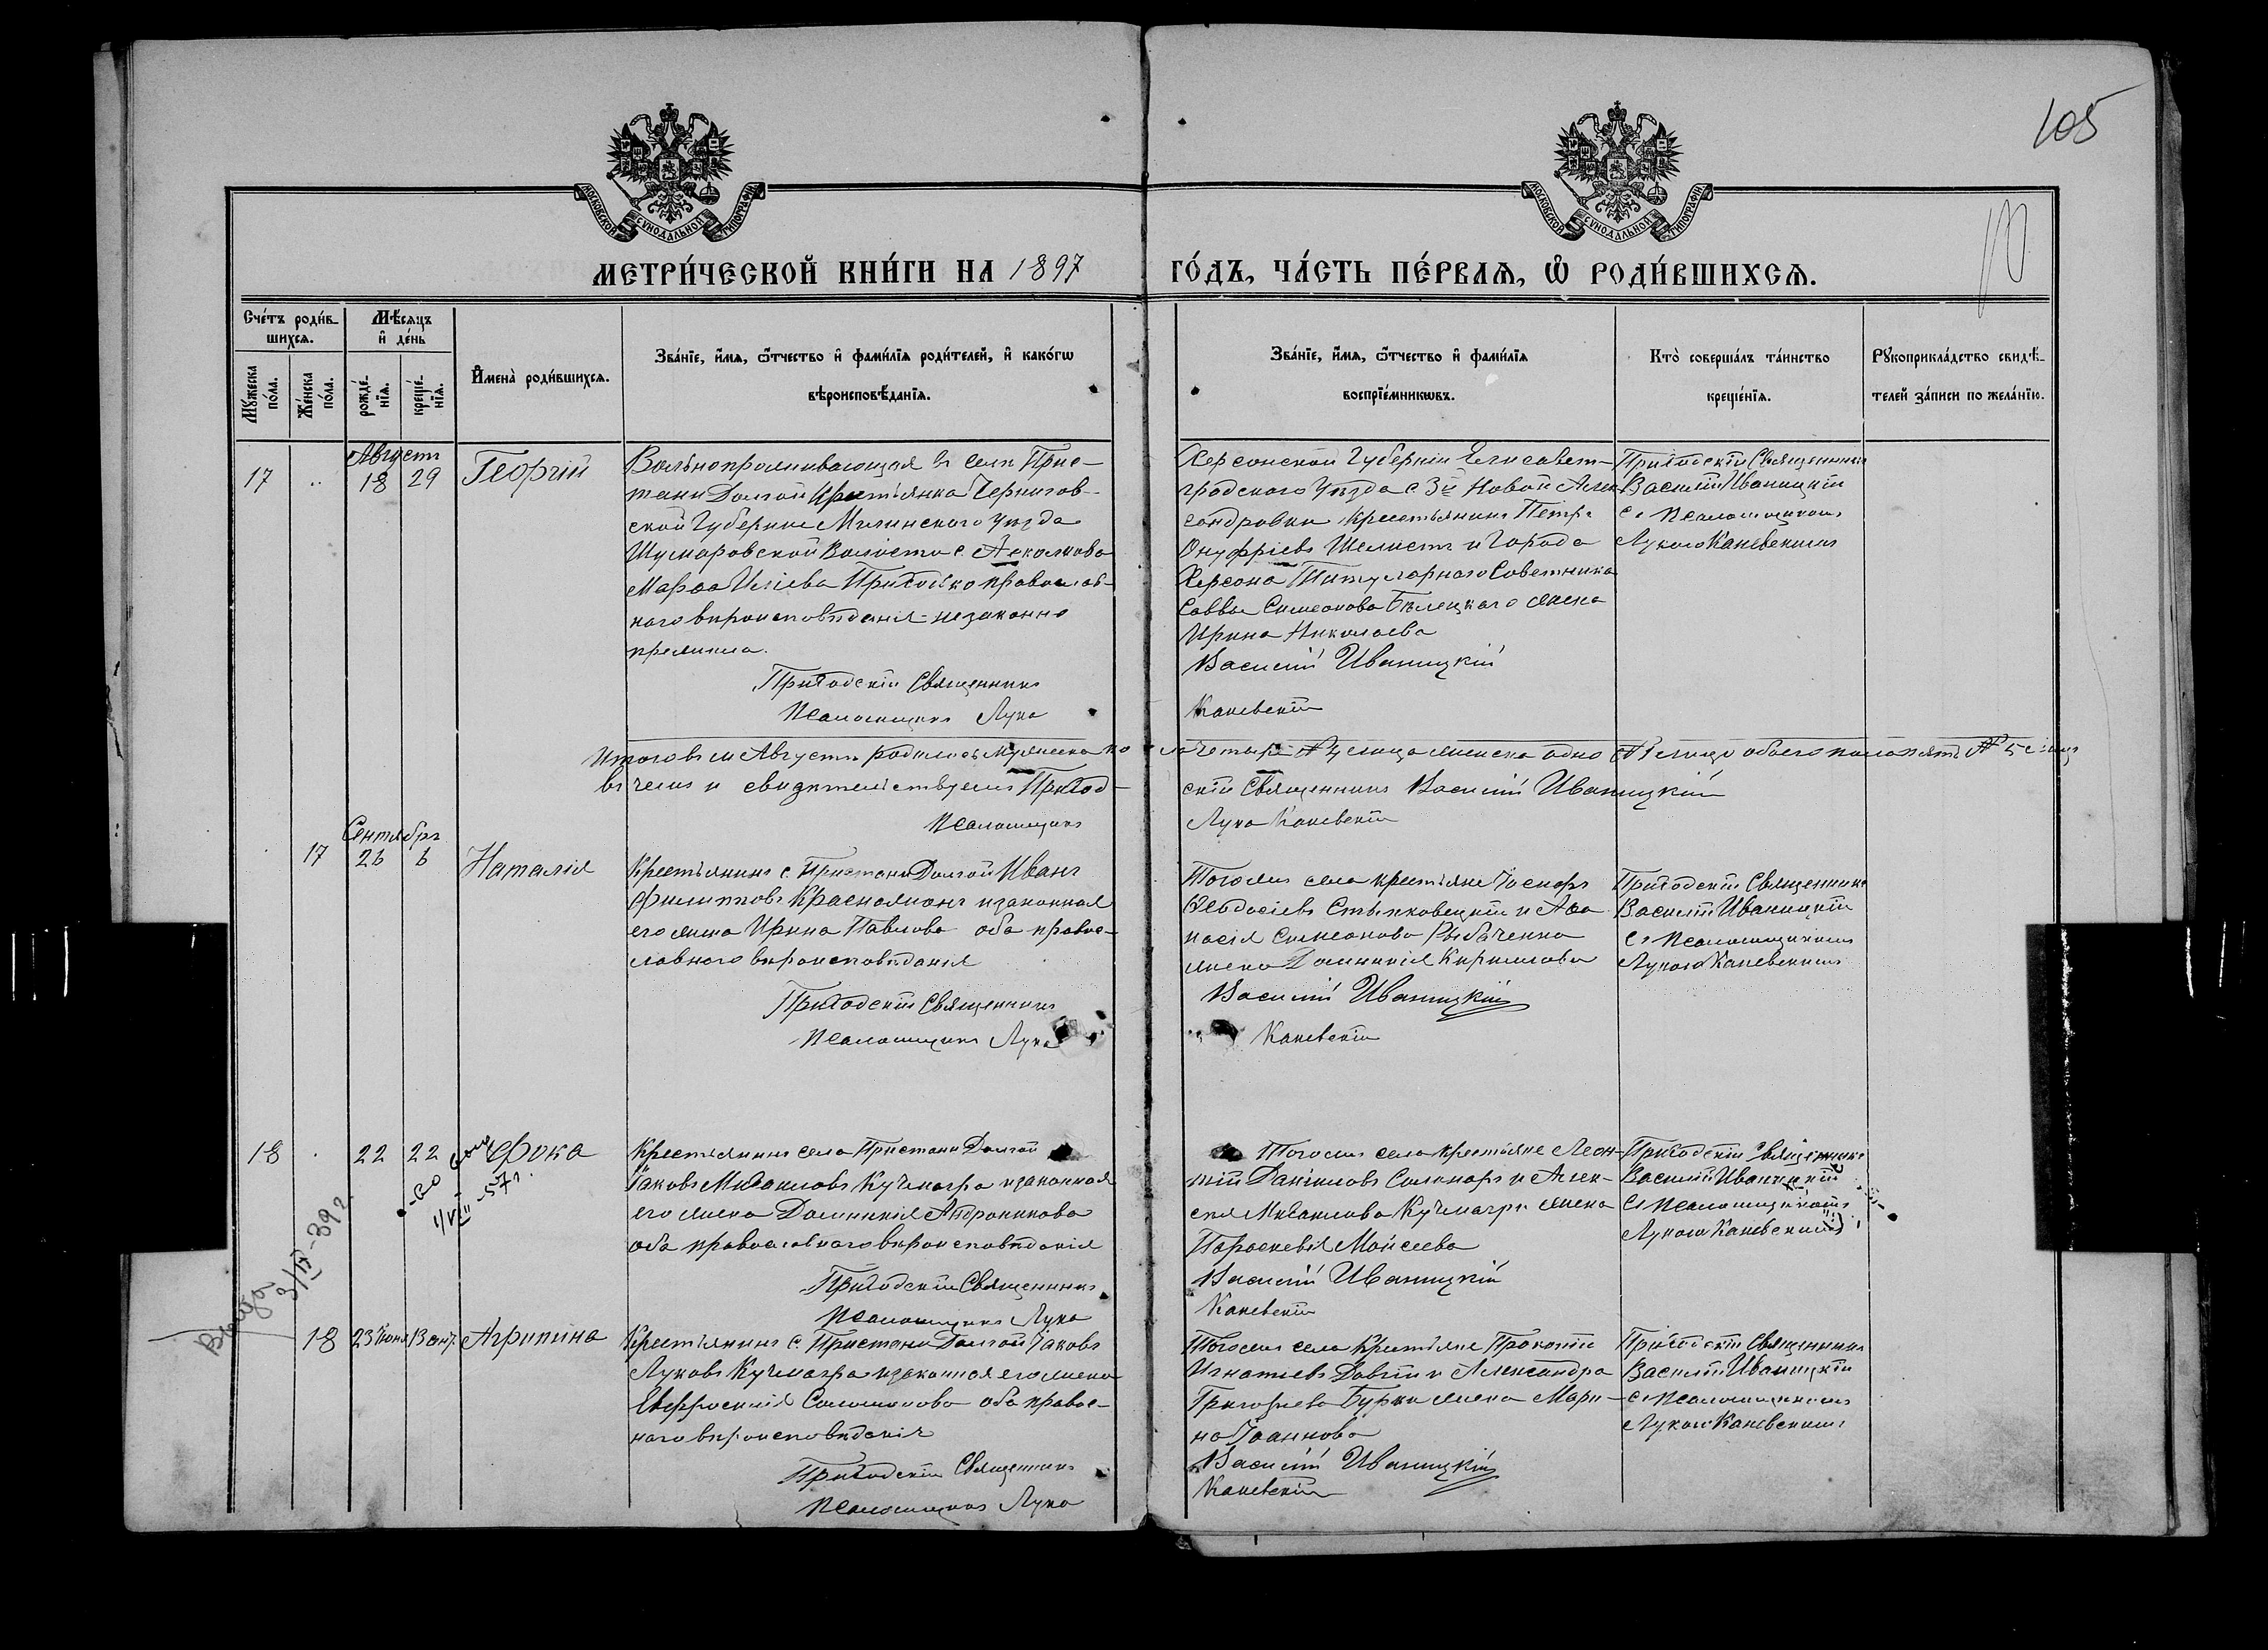 105
10
МОСКОВСКОЙ СѴНОДАЛЬНОЙ ТИПОГРАФІИ
МОСКОВСКОЙ СѴНОДАЛЬНОЙ ТИПОГРАФІИ
МЕТРИ́ЧЕСКОЙ КНИ́ГИ НА 1897
ГО́ДЪ, ЧА́СТЬ ПЕ́РВАѦ, Ѿ РОДИ́ВШИХСѦ.
Сче́тъ роди́в-
шихсѧ.
Мѣ́сѧцъ
и҆ де́нь
Мꙋ́жеска по́ла.
Же́нска по́ла.
рожде́-
нїѧ.
креще́-
нїѧ.
И҆мена̀ роди́вшихсѧ.
Зва́нїе, и҆́мѧ, ѻ҆́тчество и҆ фами́лїѧ роди́телей, и҆ како́гѡ
вѣроисповѣ́данїѧ.
Зва́нїе, и҆́мѧ, ѻ҆́тчество и҆ фами́лїѧ
воспрїе́мникѡвъ.
Кто̀ соверша́лъ та́инство
креще́нїѧ.
Рꙋкоприкла́дство свидѣ́-
телей за́писи по жела́нїю.
Августъ
17
18 29
Георгій
Вольнопроживающая въ селѣ Прис-
тани Долгой Крестьянка Чернигов-
ской Губерніи Мглинскаго Уѣзда
Шумаровской Волости с.
Марфа Иліева православ-
наго вѣроисповѣданія незаконно
прижила.
Приходскій Священникъ
Псаломщикъ Лука
Херсонской Губерніи Елисавет-
градскаго Уѣзда с 3й Новой Алек-
сандровки Крестьянинъ Петръ
Онуфріевъ Шелистъ и Города
Херсона Титулярнаго Советника
Саввы Симеонова Бѣлецкаго жена
Ирина Николаева
Василій Иваницкій
Каневскій
Приходскій Священникъ
Василій Иваницкій
съ Псаломщикомъ
Лукою Каневскимъ
Итого въ м Августѣ родилось мужеска по
ла четыре № 4 лица женска одно № 1 лицо обоего пола пять № 5 лицъ
въ чемъ и свидѣтельствуемъ Приход-
скій Священникъ Василій Иваницкій
Псаломщикъ
Лука Каневскій
Сентябрь
17
26 6
Наталія
Крестьянинъ с. Пристани Долгой Иванъ
Филипповъ Красножонъ и законная
его жена Ирина Павлова оба правос-
лавнаго вѣроисповѣданія
Приходскій Священникъ
Псаломщикъ Лука
Тогоже села крестьяне Іосифъ
Ѳеодосіевъ Стыпковецкій и Аѳа
насія Симеонова Рыбаченка
жена Домникія Кириллова
Василій Иваницкій
Каневскій
Приходскій Священникъ
Василій Иваницкій
съ Псаломщикомъ
Лукою Каневскимъ
18
22 22
Фока
1/VIII-57г.
Крестьянинъ села Пристани Долгой
Іаковъ Михаиловъ Кучмагра и законная
его жена Домникія Андроникова
оба православнаго вѣроисповѣданія
Приходскій Священникъ
Псаломщикъ Лука
Тогоже села крестьяне Леон-
тій Даніиловъ и Алек-
сѣя Михаилова Кучмагры жена
Параскевія Моисеева
Василій Иваницкій
Каневскій
Приходскій Священникъ
Василій Иваницкій
съ Псаломщикомъ
Лукою Каневскимъ
3/IV-39г.
18
23 Іюня
Агрипина
Крестьянинъ с. Пристани Долгой Іаковъ
Луковъ Кучмагра и законная его жена
Евфросинія Соломонова оба правос-
наго вѣроисповѣданія
Приходскій Священникъ
Псаломщикъ Лука
Тогоже села Крестьяне Прокопій
Игнатіевъ и Александра
Григорьева Бурки жена Мари-
на Іоаннова
Василій Иваницкій
Каневскій
Приходскій Священникъ
Василій Иваницкій
съ Псаломщикомъ
Лукою Каневскимъ